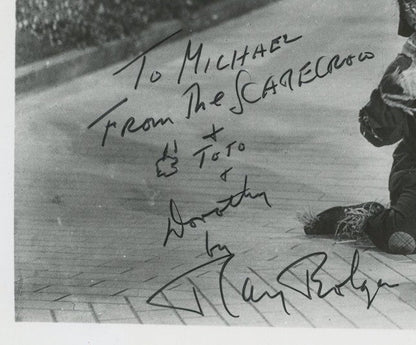 To Michael
From The Scarecrow
+
& Toto
+
Dorothy
by
Ray Bolger